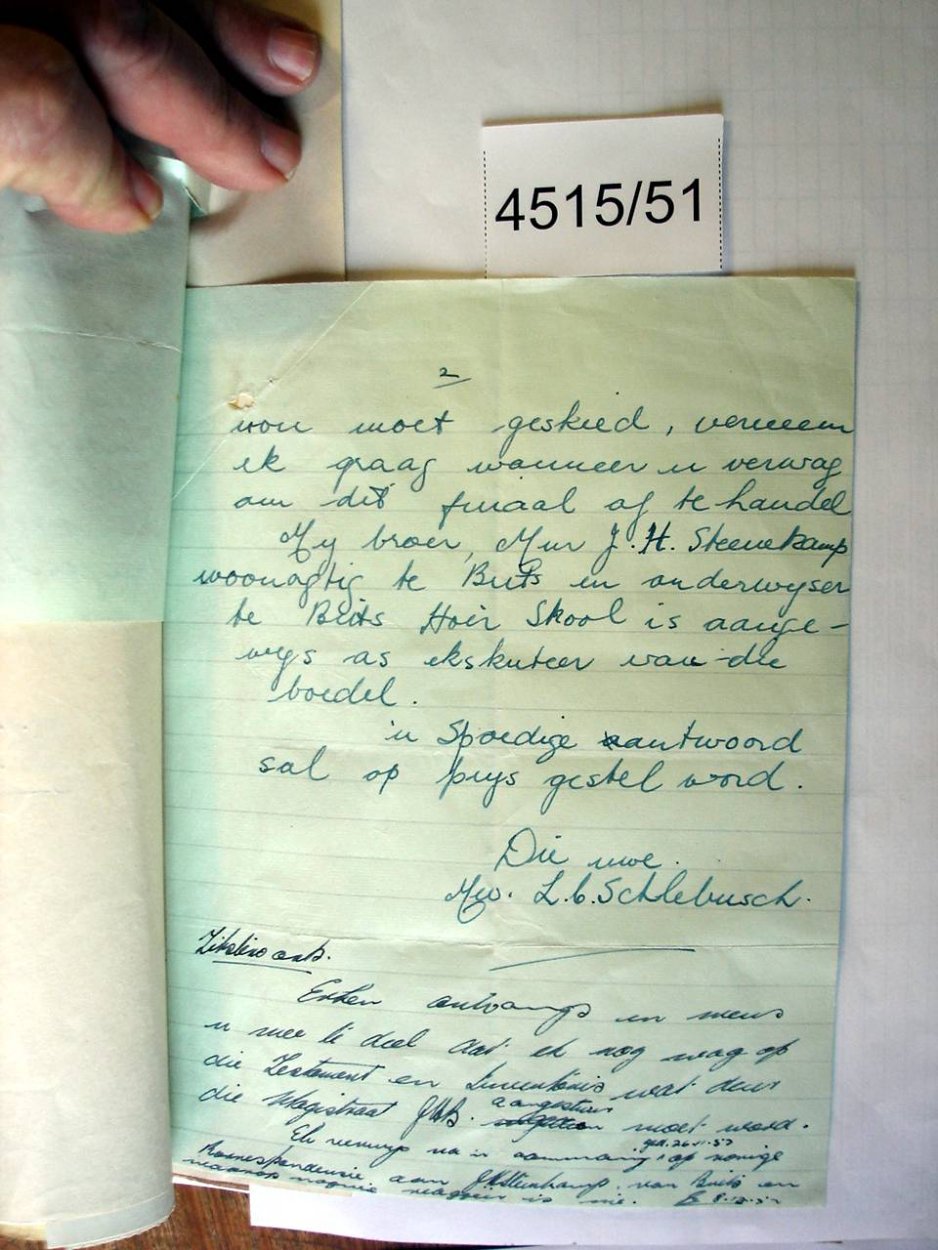 4515/51
2
nou moet geskied, verneem
ek graag wanneer u verwag
om dit finaal af te handel
My broer, Mnr J. H. Steenekamp
woonagtig te Brits en onderwyser
te Brits Hoër Skool is aange-
wys as eksekuteur van die
boedel.
'n Spoedige antwoord
sal op prys gestel word.
Die uwe.
Mev. L. C. Schlebusch.
Erken ontvangs en wens
u mee te deel dat ek nog wag op
die Testament en Inventaris wat deur
die Magistraat JHB. aangestuur moet word.
Ek verwys na 'n aanmaning op vorige
korrespondensie aan J H Steenkamp van Brits en
waarop nognie reageer is nie.